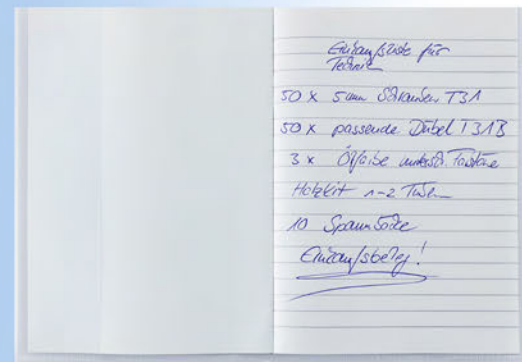 Einkaufsliste für
Technik
50 x 5mm Schrauben T31
50 x passende Dübel T31B
3 x Ölfarbe untersch. Farbtöne
Holzkit 1-2 Tuben
10 Spann
Einkaufsbeleg!